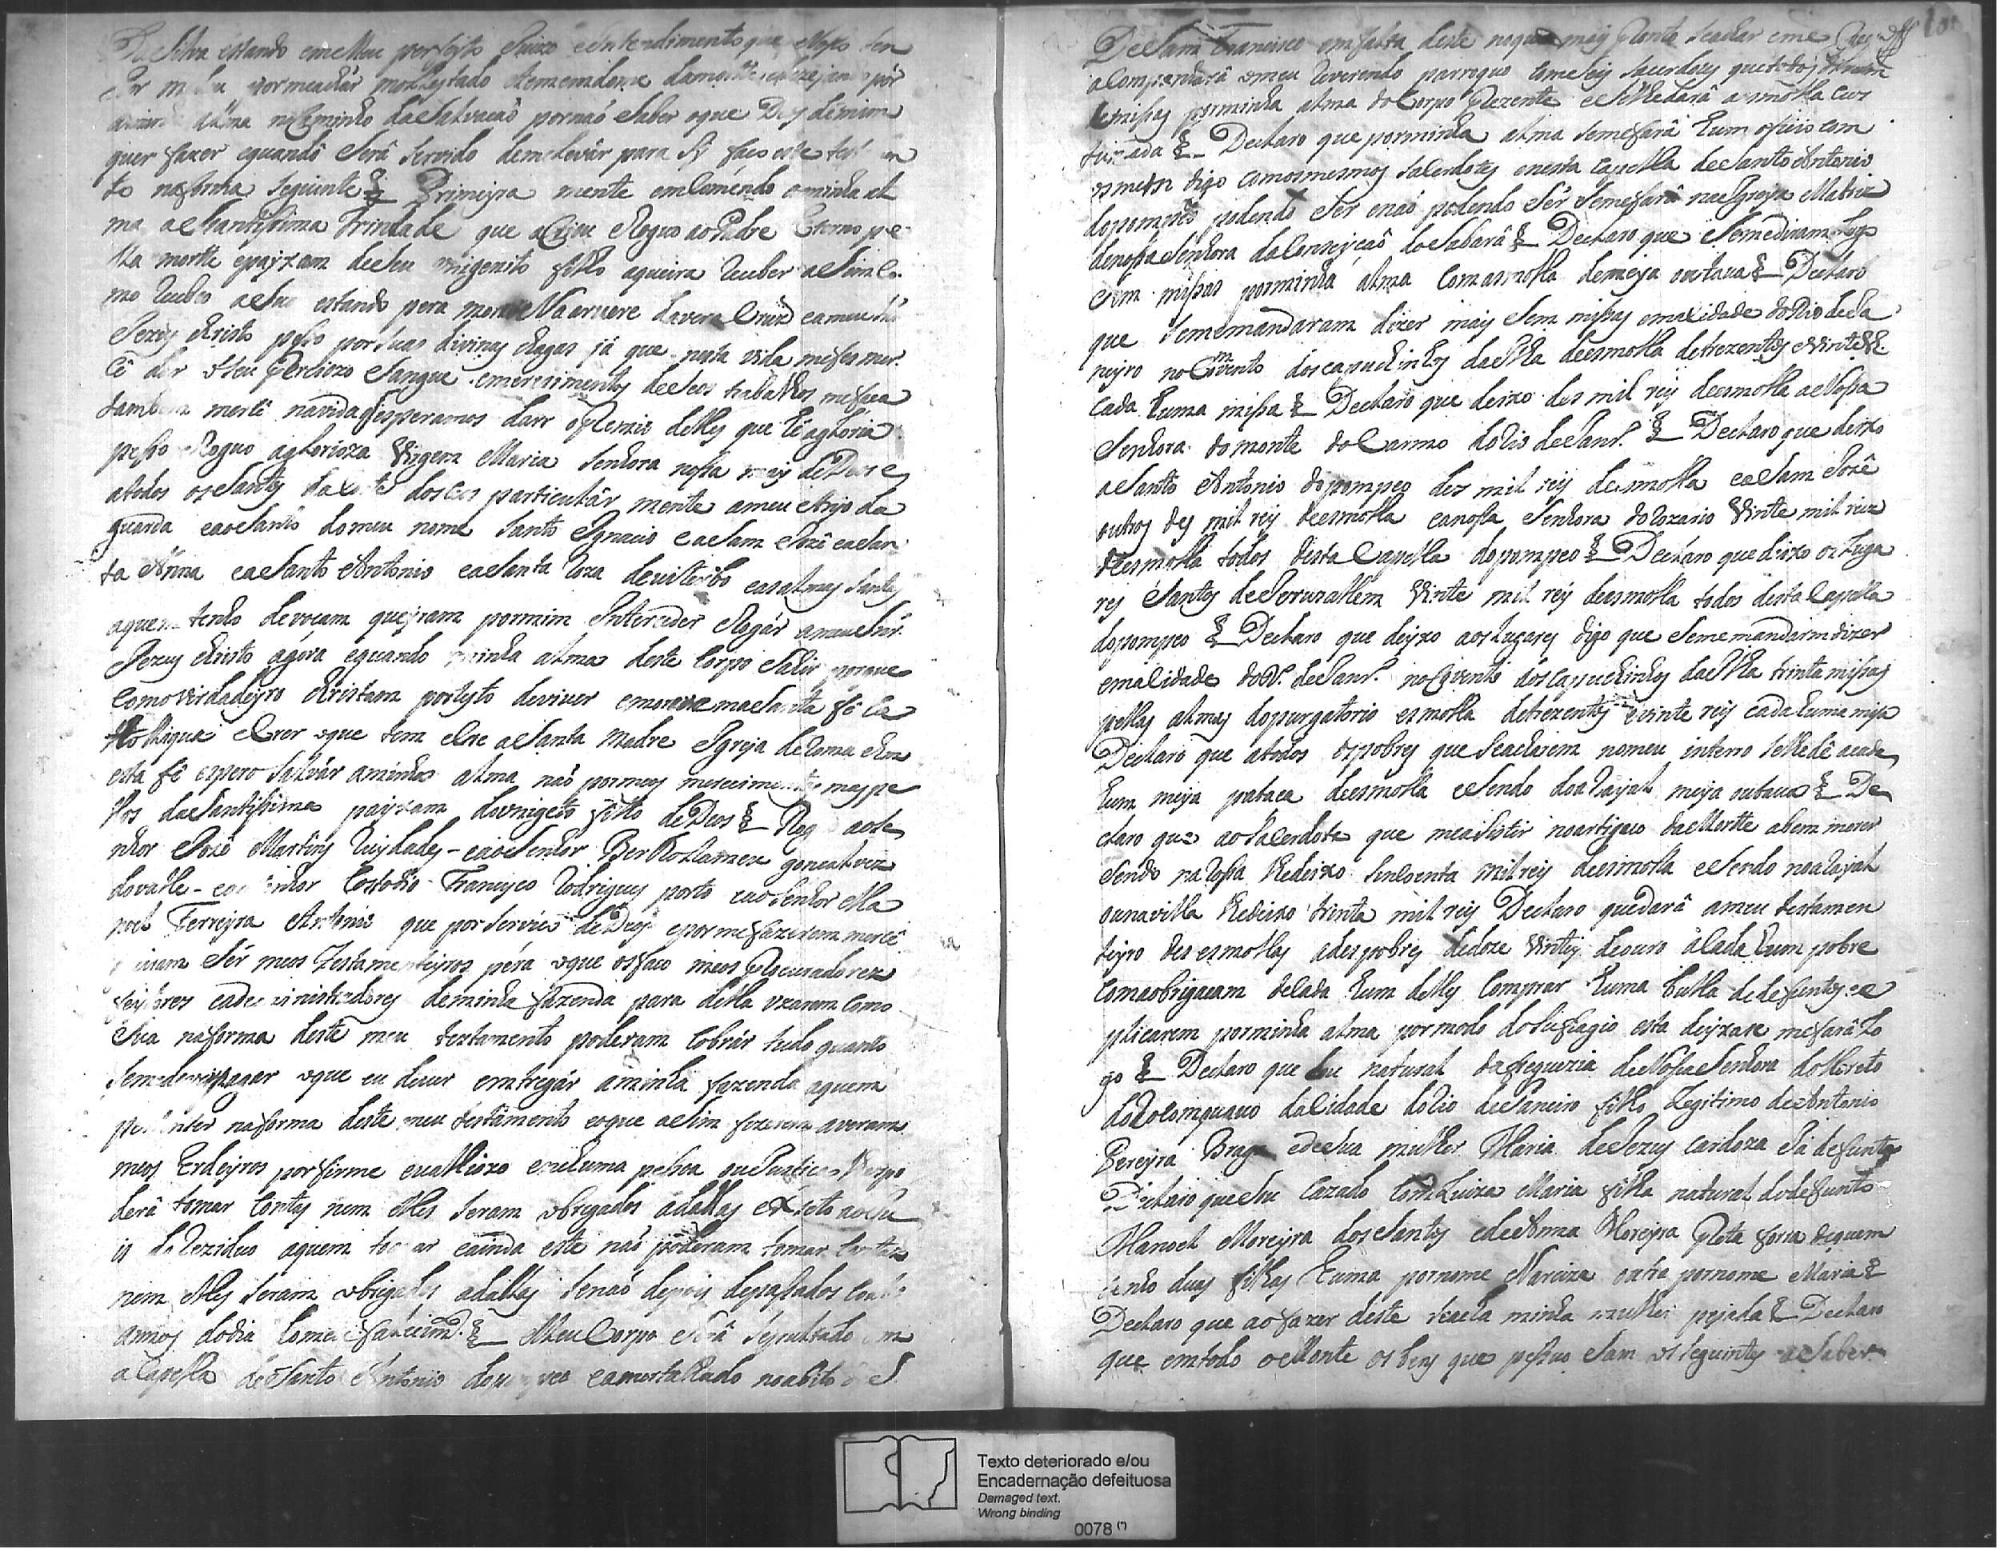 da Silva estando em meu perfeyto Juizo e entendimento que noso Sen
por minha alma no Caminho da Salvacaõ por naõ Saber o que Deos de mim
quer fazer e quando Serâ Servido de me levár para Sy faço este
to na forma Seguinte Primeyra mente emComendo a minha al
ma a Santissima Trindade que a Criou e Roguo ao Padre Eterno pe
lla mortte e payxam de Seu unigenito filho a queira Receber asim Co
mo Recebeo a Sua estando pera morrer Na arvere da vera Crûs e a meu
Jezus Christo pesso por Suas divinas chagas já que nesta vida me fes mer
cê dar o Seu Perciozo Sangue e merecimentos de Seos trabalhos me fassa
tambem mercê na vida que esperamos darr o Premio delles que hê a gloria
pesso e Roguo a glorioza Virgem Maria Senhora nossa may de Deos e
a todos os Santos da Corte dos Ceos particulár mente a meu Anjo da
guarda e ao Santo do meu nome Santo Ignacio e a Sam Jozê e a San
ta Anna e a Santo Antonio e a Santa Roza de viterbo e as almas Santas
a quem tenho devoçam queyram por mim Interceder e Rogár a meu Snr
Jezus Christo agora e quando minha alma deste Corpo Sahir porque
Como verdadeyro christam portesto de viver e morrer na Santa fê Ca
thollica e Crer o que tem e Cre a Santa Madre Igreja de Roma e em
esta fê espero Salvár a minha alma naõ por meus merecimentos mas pe
llos da Santissima payxam do unigeto filho de Deos Rogo ao Se
nhor Jozê Martins Ruylades e ao Senhor Bertholameu goncalves
do valle e ao Senhor Costodio Francisco Rodrigues porto e ao Senhor Ma
noel Ferreyra Antonio que por Servico de Deos e por me fazerem mercê
queiram Sêr meus Testamenteyros péra o que os faco meos Procuradores
feytores e adeministradores de minha fazenda para della uzarem Como
Sua na forma deste meu testamento poderam Cobrár tudo quanto
Se me dever e pagar o que eu dever emtregár a minha fazenda a quem
pertenser na forma deste meu testamento e o que asim fizerem averam
meos Erdeyros por firme e valliozo e nenhuma pessoa ou Justica lhe po
derâ tomar Contas nem elles Seram obrigados a dallas exseto ao Ju
is do Reziduo a quem tocar e ainda este naõ poderam tomar Contas
nem elles Seram obrigados a dallas Senaõ depois de passados coatro
annos do dia Meu Corpo Serâ Sepultado em
a Capella de Santo Antonio do pompeo e amortalhado no abito de S
De Sam Francisco em falta deste naquele mais Pronto Se achar e me
aCompanhará o meu Reverendo parroquo Come seis Sacerdotes que todos diram
misas por minha alma de Corpo Prezente e Se lhe dará a esmolla Cus
tumada Declaro que por minha alma Se me farâ hum oficio com
os mesm digo Com os mesmos Sacerdotes e nesta Capella de Santo Antonio
do pompeo podendo Ser e naõ podendo Sêr Se me farâ na Igreja Matriz
de nossa Senhora da Conceyçaõ do Sabarâ Declaro que Se me diram Logo
Cem missas por minha alma Com a esmolla de meya outava Declaro
que Se me mandaram dizer mais Sem misas na Cidade do Rio de Ja
neyro no Convento dos capuchinhos da Ilha de esmolla de trezentos e vinte R.
Cada huma missa Declaro que deixo des mil reis de esmolla a Nossa
Senhora do monte do Carmo do Rio de Janr. Declaro que deixo
a Santo Antonio do pompeo des mil reis de esmolla e a Sam Jozê
outros des mil reis de esmolla e a nossa Senhora do Rozario Vinte mil reis
de esmolla todos desta Capella do pompeo Declaro que deixo os luga
res Santos de Jeruzallem Vinte mil reis de esmolla todos desta Capella
do pompeo Declaro que deyxo aos lugares digo que Se me mandaram dizer
na Cidade do R. de Janr. no Convento dos Capuchinhos da Ilha trinta missas
pellas almas do purgatorio esmolla de trezentos e vinte reis cada huma misa
Declaro que a todos os pobres que Se acharem no meu interro Se lhe dê a cada
hum meya pataca de esmolla e Sendo do aRayal meya outava De
claro que ao Sacerdote que me asistir no artigo da Mortte a bem morrer
Sendo na Rossa lhe deixo Sincoenta mil reis de esmolla e Sendo no aRayal
ou na villa lhe deixo trinta mil reis Declaro que darâ a meu testamen
teyro des esmollas a des pobres de doze vintes de ouro a Cada hum pobre
Com a obrigacam de Cada hum delles Comprar huma bulla de defuntos e a
plicarem por minha alma por modo de Sufragio esta deyxa se me farâ Lo
go Declaro que Sou natural da freguezia de Nossa Senhora do Loreto
da Cidade do Rio de Janeiro filho Legitimo de Antonio
Pereyra Braga e de Sua mulher Maria de Jezus Cardoza Já defuntos
Declaro que Sou Cazado Com Luiza Maria filha natural do defunto
Manoel Moreyra dos Santos e de Anna Moreyra Preta forra de quem
tenho duas filhas huma por nome Narciza outra por nome Maria
Declaro que ao fazer deste Se acha minha mulher pejada Declaro
que em todo o Monte os bens que possuo Sam os Seguintes a Saber
Texto deteriorado e/ou
Encadernação defeituosa
Damaged text.
Wrong binding
0078 (*)